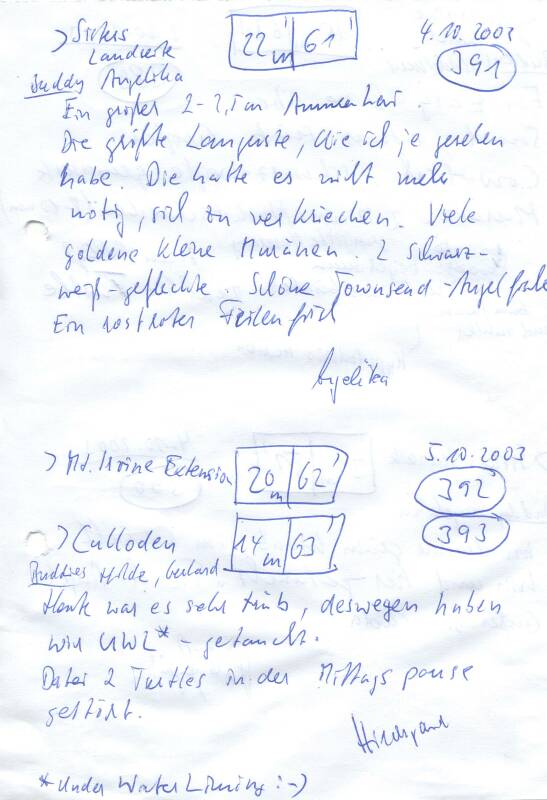 > Sisters 22 m 61' 4.10.2003
Landseite 391
Buddy Angelika
Ein großer 2-2,5m Ammenhai.
Die größte Languste, die ich je gesehen
habe. Die hatte es nicht mehr
nötig, sich zu verkriechen. Viele
goldene kleine Muränen. 2 schwarz-
weiß-gefleckte. Schöne Townsend-Angelfische
Ein rostroter Feilenfisch
Angelika
> Mt. Irvine Extension 20 m 62' 5.10.2003
392
> Culloden 14 m 63' 393
Buddies Hilde, Gerhard
Heute war es sehr trüb, deswegen haben
wir UWL* - getaucht.
Dabei 2 Turtles in der Mittagspause
gestört.
*Under Water Liming :-)